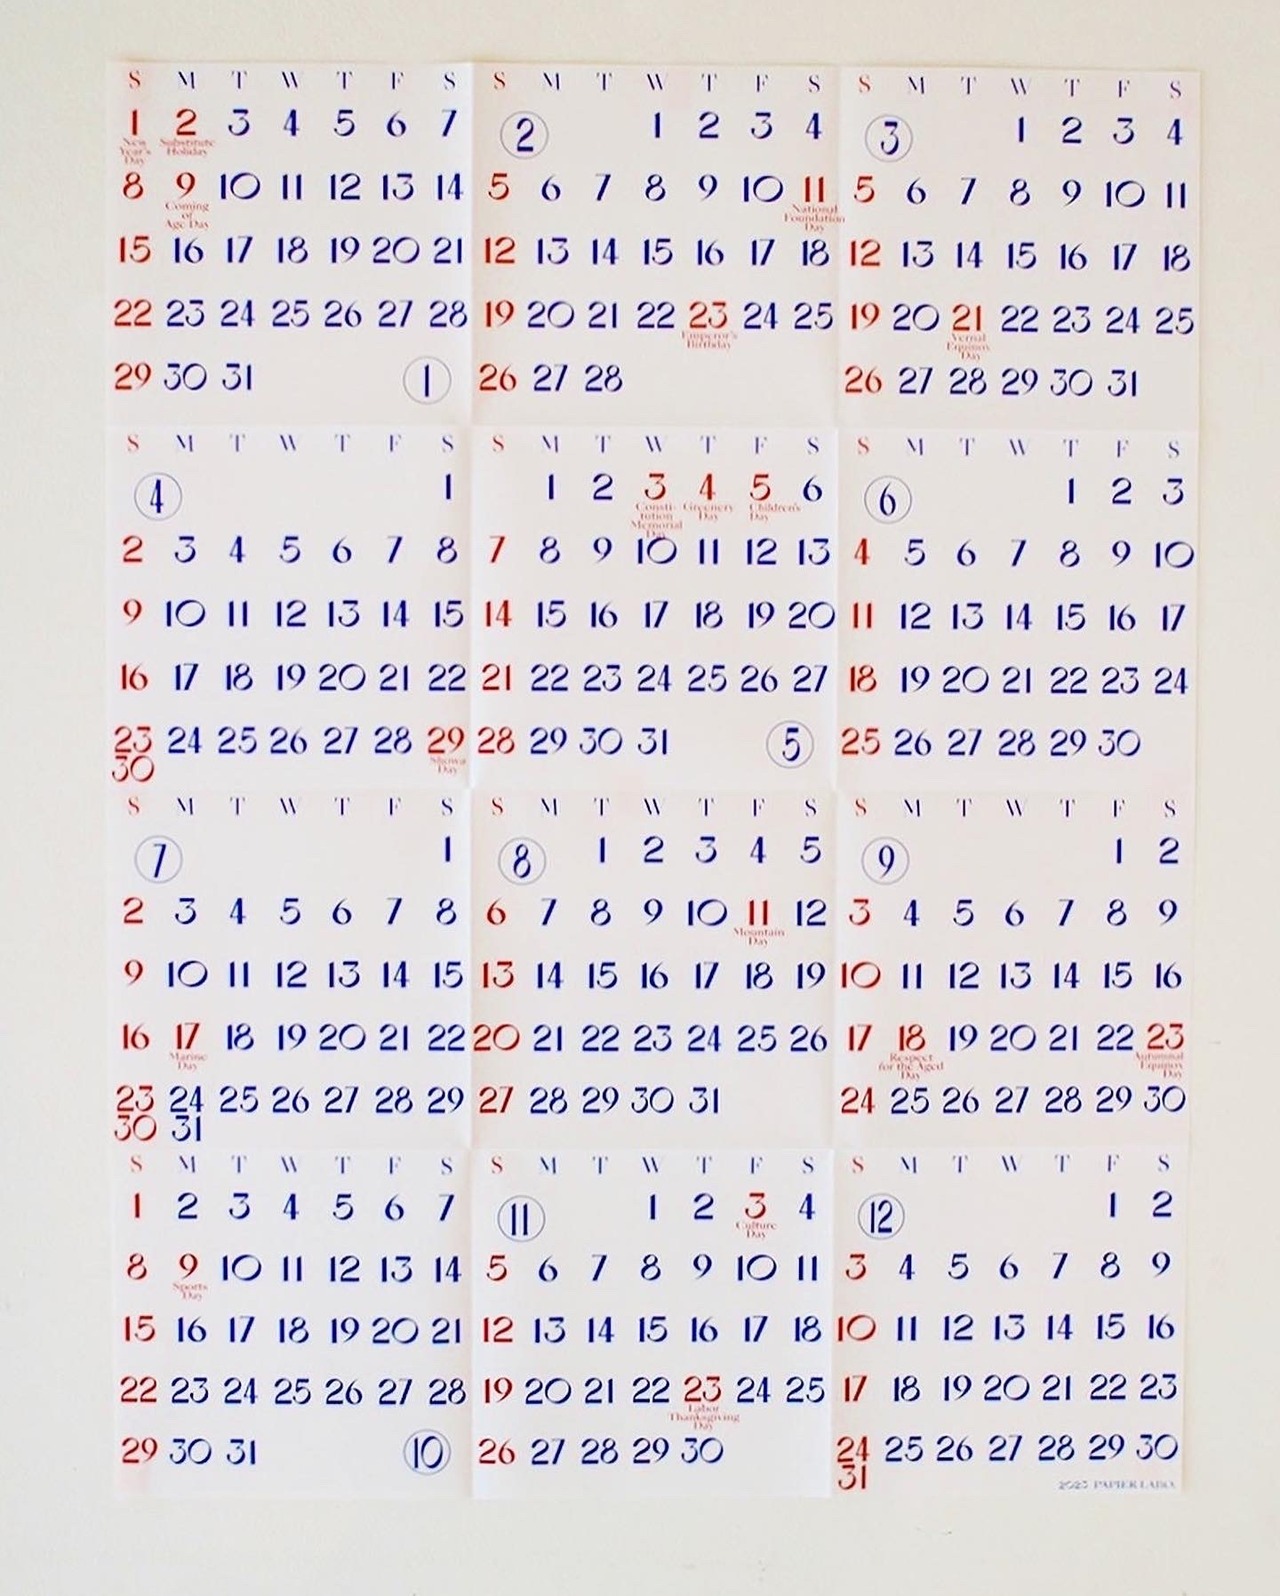 S M T W T F S
1 2 3 4 5 6 7
New Year's Day
Substitute Holiday
8 9 10 11 12 13 14
Coming of Age Day
15 16 17 18 19 20 21
22 23 24 25 26 27 28
29 30 31
1
S M T W T F S
2
1 2 3 4
5 6 7 8 9 10 11
National Foundation Day
12 13 14 15 16 17 18
19 20 21 22 23 24 25
Emperor's Birthday
26 27 28
S M T W T F S
3
1 2 3 4
5 6 7 8 9 10 11
12 13 14 15 16 17 18
19 20 21 22 23 24 25
Vernal Equinox Day
26 27 28 29 30 31
S M T W T F S
4
1
2 3 4 5 6 7 8
9 10 11 12 13 14 15
16 17 18 19 20 21 22
23 24 25 26 27 28 29
30
Showa Day
S M T W T F S
1 2 3 4 5 6
Consti-
tution
Memorial
Day
Greenery Day
Children's Day
7 8 9 10 11 12 13
14 15 16 17 18 19 20
21 22 23 24 25 26 27
28 29 30 31
5
S M T W T F S
6
1 2 3
4 5 6 7 8 9 10
11 12 13 14 15 16 17
18 19 20 21 22 23 24
25 26 27 28 29 30
S M T W T F S
7
1
2 3 4 5 6 7 8
9 10 11 12 13 14 15
16 17 18 19 20 21 22
Marine Day
23 24 25 26 27 28 29
30 31
S M T W T F S
8
1 2 3 4 5
6 7 8 9 10 11 12
Mountain Day
13 14 15 16 17 18 19
20 21 22 23 24 25 26
27 28 29 30 31
S M T W T F S
9
1 2
3 4 5 6 7 8 9
10 11 12 13 14 15 16
17 18 19 20 21 22 23
Respect for the Aged Day
Autumnal Equinox Day
24 25 26 27 28 29 30
S M T W T F S
1 2 3 4 5 6 7
8 9 10 11 12 13 14
Sports Day
15 16 17 18 19 20 21
22 23 24 25 26 27 28
29 30 31
10
S M T W T F S
11
1 2 3 4
Culture Day
5 6 7 8 9 10 11
12 13 14 15 16 17 18
19 20 21 22 23 24 25
Labor Thanksgiving Day
26 27 28 29 30
S M T W T F S
12
1 2
3 4 5 6 7 8 9
10 11 12 13 14 15 16
17 18 19 20 21 22 23
24 25 26 27 28 29 30
31
2023 PAPIER LABO.